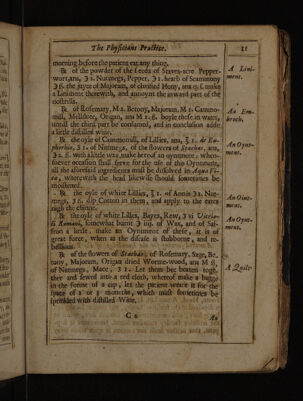 The Physicians Practice. 11
morning before the patient eat any thing.
℞ of the powder of the seeds of Staves-acre Pepper-
wort, ana, ʒ 2. Nutmegs, Pepper, ʒ 1. hearb of Scammony
ʒ ß. the juyce of Majoram, of clarified Huny, ana q. s. make
a Liniment therewith, and annoynt the inward part of the
nostrills.
A Lini-
ment.
℞ of Rosemary, M 2. Betony, Majoram, M 1. Cammo-
mill, Melilote, Origan, ana M 1. ß. boyle these in water,
untill the third part be consumed, and in conclusion adde
a little distilled wine.
An Em-
broch.
℞ the oyle of Cammomill, of Lillies, ana, ℥ 1. de Eu-
phorbio, ʒ 1. of Nutmegs, of the flowers of Stachar, ana,
ʒ 2. ß. with a little wax, make hereof an oyntment; whoso-
soever occasion shall serve for the use of this Oyntment,
all the aforesaid ingredients must be dissolved in Aqua Vi-
tæ, wherewith the head likewise should sometimes be
moistened.
An Oynt-
ment.
℞ the oyle of white Lillies, ℥ 1. of Annis ʒ 2. Nut-
megs, ʒ ß. dip Cotton in them, and apply to the eares
An Oint-
ment.
℞ the oyle of white Lillies, Bayes, Rew, ℥ vi
Romani, somewhat burnt ʒ iiij. of Wax, and of Saf-
fron a little, make an Oyntment of these, it is of
great force, when as the disease is stubborne, and re-
bellious.
An Oynt-
ment.
℞ of the flowers of Stachados, of Rosemary, Sage, Be-
tony, Majoram, Origan dried Worme-wood, ana M ß.
of Nutmegs, Mace, ʒ 1. Let them be beaten toge-
ther and sewed into a red cloth, whereof make a bagge
in the forme of a cap, let the patient weare it for the
space of 2 or 3 moneths, which must sometimes be
sprinkled with distilled Wine.
A Quilt.
C 2 An